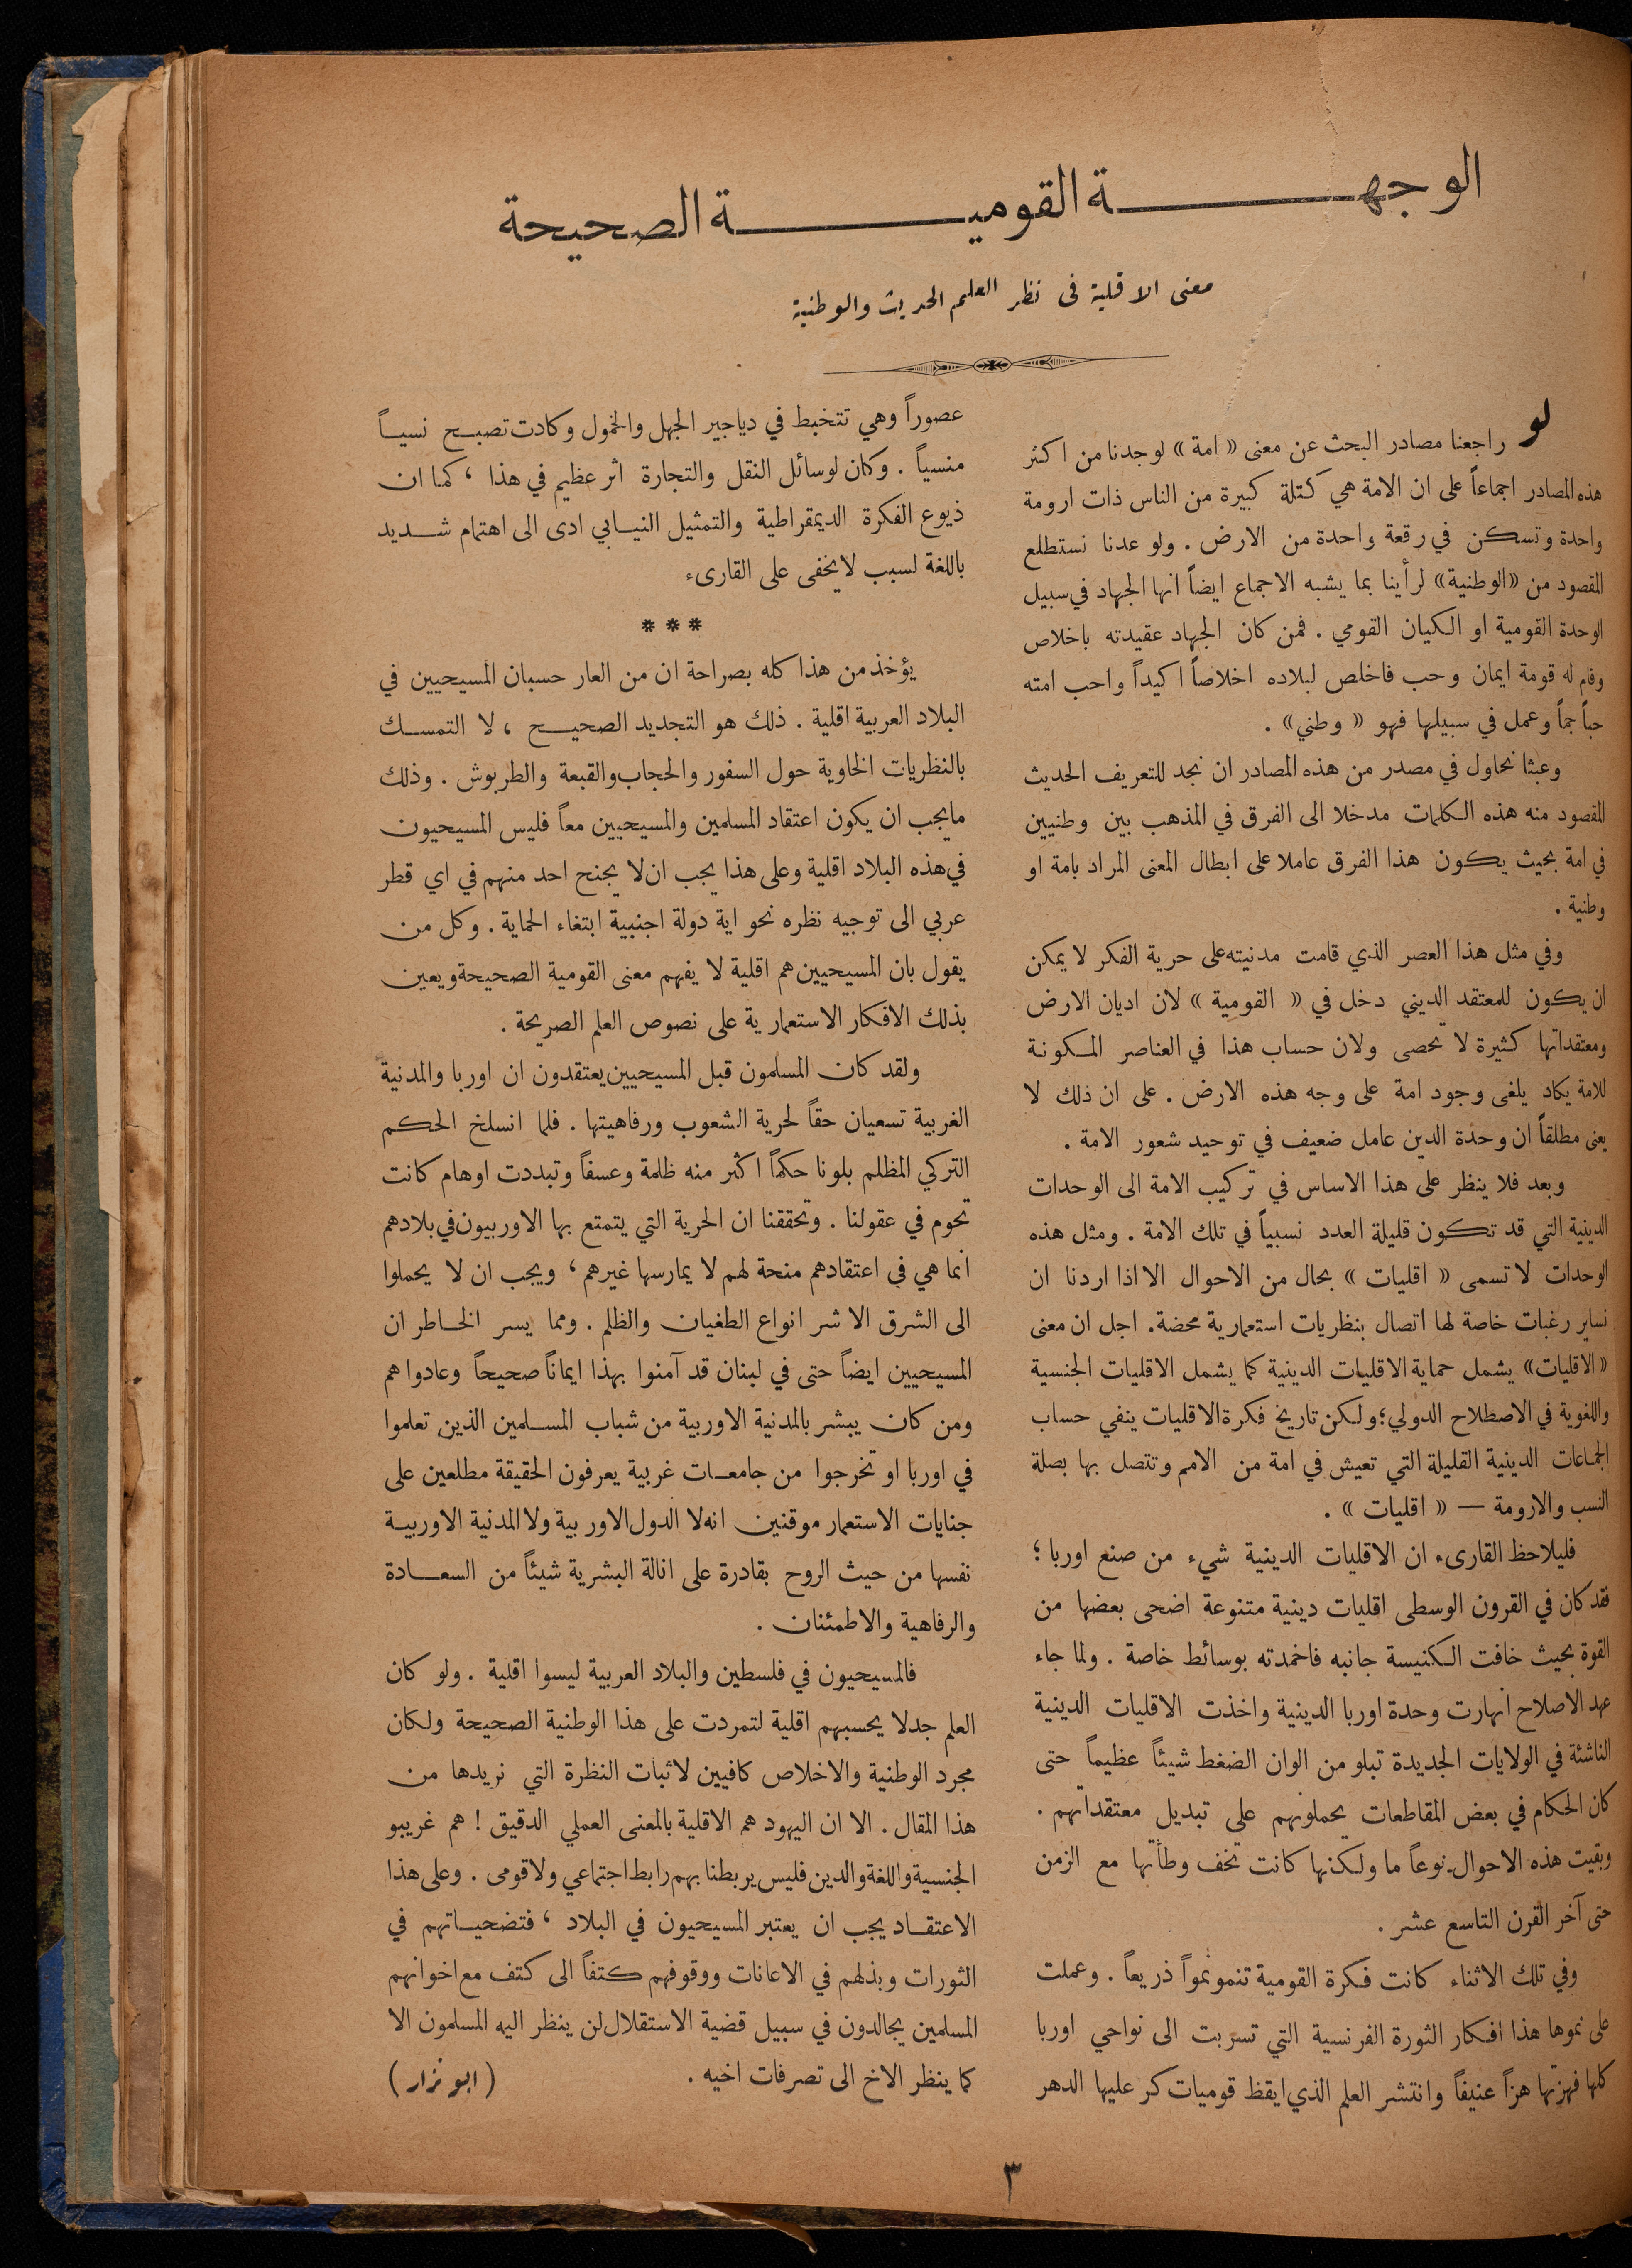 الوجهة القومية الصحيحة
معنى الاقلية في نظر العلم الحديث والوطنية
لو راجعنا مصادر البحث عن معنى « امة » لوجدنا من اكثر
هذه المصادر اجماعاً على ان الامة هي كتلة كبيرة من الناس ذات ارومة
واحدة وتسكن في رقعة واحدة من الارض . ولو عدنا نستطلع
المقصود من «الوطنية» لرأينا بما يشبه الاجماع ايضاً انها الجهاد في سبيل
الوحدة القومية او الكيان القومي . فمن كان الجهاد عقيدته باخلاص
وقام له قومة ايمان وحب فاخلص لبلاده اخلاصاً اكيداً واحب امته
حباً جماً وعمل في سبيلها فهو « وطني» .
وعبثا نحاول في مصدر من هذه المصادر ان نجد للتعريف الحديث
المقصود منه هذه الكلمات مدخلا الى الفرق في المذهب بين وطنيين
في امة بحيث يكون هذا الفرق عاملا على ابطال المعنى المراد بامة او
وطنية .
وفي مثل هذا العصر الذي قامت مدنيته على حرية الفكر لا يمكن
ان يكون للمعتقد الديني دخل في « القومية » لان اديان الارض
ومعتقداتها كثيرة لا تحصى ولان حساب هذا في العناصر المكونة
للامة يكاد يلغى وجود امة على وجه هذه الارض . على ان ذلك لا
يعنى مطلقاً ان وحدة الدين عامل ضعيف في توحيد شعور الامة .
وبعد فلا ينظر على هذا الاساس في تركيب الامة الى الوحدات
الدينية التي قد تكون قليلة العدد نسبياً في تلك الامة . ومثل هذه
الوحدات لا تسمى « اقليات » بحال من الاحوال الا اذا اردنا ان
نساير رغبات خاصة لها اتصال بنظريات استعمارية محضة. اجل ان معنى
«الاقليات» يشمل حماية الاقليات الدينية كما يشمل الاقليات الجنسية
واللغوية في الاصطلاح الدولي؛ ولكن تاريخ فكرة الاقليات ينفي حساب
الجماعات الدينية القليلة التي تعيش في امة من الامم وتتصل بها بصلة
النسب والارومة — « اقليات » .
فليلاحظ القارىء ان الاقليات الدينية شيء من صنع اوربا ؛
فقد كان في القرون الوسطى اقليات دينية متنوعة اضحى بعضها من
القوة بحيث خافت الكنيسة جانبه فاخمدته بوسائط خاصة . ولما جاء
عهد الاصلاح انهارت وحدة اوربا الدينية واخذت الاقليات الدينية
الناشئة في الولايات الجديدة تبلو من الوان الضغط شيئاً عظيماً حتى
كان الحكام في بعض المقاطعات يحملونهم على تبديل معتقداتهم .
وبقيت هذه الاحوال نوعاً ما ولكنها كانت تخف وطأتها مع الزمن
حتى آخر القرن التاسع عشر .
وفي تلك الاثناء كانت فكرة القومية تنمو نمواً ذريعاً . وعملت
على نموها هذا افكار الثورة الفرنسية التي تسربت الى نواحي اوربا
كلها فهزتها هزاً عنيفاً وانتشر العلم الذي ايقظ قوميات كر عليها الدهر
عصوراً وهي تتخبط في دياجير الجهل والخمول وكادت تصبح نسياً
منسياً . وكان لوسائل النقل والتجارة اثر عظيم في هذا ، كما ان
ذيوع الفكرة الديمقراطية والتمثيل النيابي ادى الى اهتمام شديد
باللغة لسبب لا يخفى على القارىء
* * *
يؤخذ من هذا كله بصراحة ان من العار حسبان المسيحيين في
البلاد العربية اقلية . ذلك هو التجديد الصحيح ، لا التمسك
بالنظريات الخاوية حول السفور والحجاب والقبعة والطربوش . وذلك
ما يجب ان يكون اعتقاد المسلمين والمسيحيين معاً فليس المسيحيون
في هذه البلاد اقلية وعلى هذا يجب ان لا يجنح احد منهم في اي قطر
عربي الى توجيه نظره نحو اية دولة اجنبية ابتغاء الحماية . وكل من
يقول بان المسيحيين هم اقلية لا يفهم معنى القومية الصحيحة ويعين
بذلك الافكار الاستعمارية على نصوص العلم الصريحة .
ولقد كان المسلمون قبل المسيحيين يعتقدون ان اوربا والمدنية
الغربية تسعيان حقاً لحرية الشعوب ورفاهيتها . فلما انسلخ الحكم
التركي المظلم بلونا حكماً اكثر منه ظلمة وعسفاً وتبددت اوهام كانت
تحوم في عقولنا . وتحققنا ان الحرية التي يتمتع بها الاوربيون في بلادهم
انما هي في اعتقادهم منحة لهم لا يمارسها غيرهم ، ويجب ان لا يحملوا
الى الشرق الا شر انواع الطغيان والظلم . ومما يسر الخاطر ان
المسيحيين ايضاً حتى في لبنان قد آمنوا بهذا ايماناً صحيحاً وعادوا هم
ومن كان يبشر بالمدنية الاوربية من شباب المسلمين الذين تعلموا
في اوربا او تخرجوا من جامعات غربية يعرفون الحقيقة مطلعين على
جنايات الاستعمار موقنين انه لا الدول الاوربية ولا المدنية الاوربية
نفسها من حيث الروح بقادرة على انالة البشرية شيئاً من السعادة
والرفاهية والاطمئنان .
فالمسيحيون في فلسطين والبلاد العربية ليسوا اقلية . ولو كان
العلم جدلا يحسبهم اقلية لتمردت على هذا الوطنية الصحيحة ولكان
مجرد الوطنية والاخلاص كافيين لاثبات النظرة التي نريدها من
هذا المقال . الا ان اليهود هم الاقلية بالمعنى العملي الدقيق ! هم غريبو
الجنسية واللغة والدين فليس يربطنا بهم رابط اجتماعي ولا قومى . وعلى هذا
الاعتقاد يجب ان يعتبر المسيحيون في البلاد ، فتضحياتهم في
الثورات وبذلهم في الاعانات ووقوفهم كتفاً الى كتف مع اخوانهم
المسلمين يجالدون في سبيل قضية الاستقلال لن ينظر اليه المسلمون الا
كما ينظر الاخ الى تصرفات اخيه . ( ابو نزار )
٣